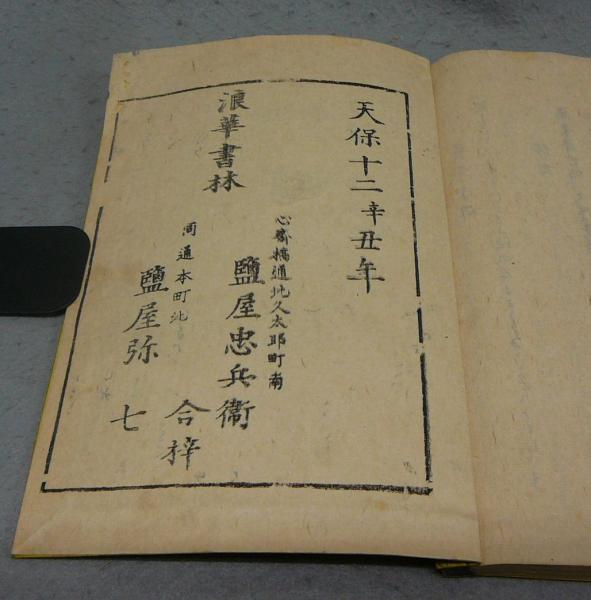 天保十二辛丑年
浪華書林
心齋橋通北久太郎町南
鹽屋忠兵衞
同通本町北
鹽屋弥七
合梓